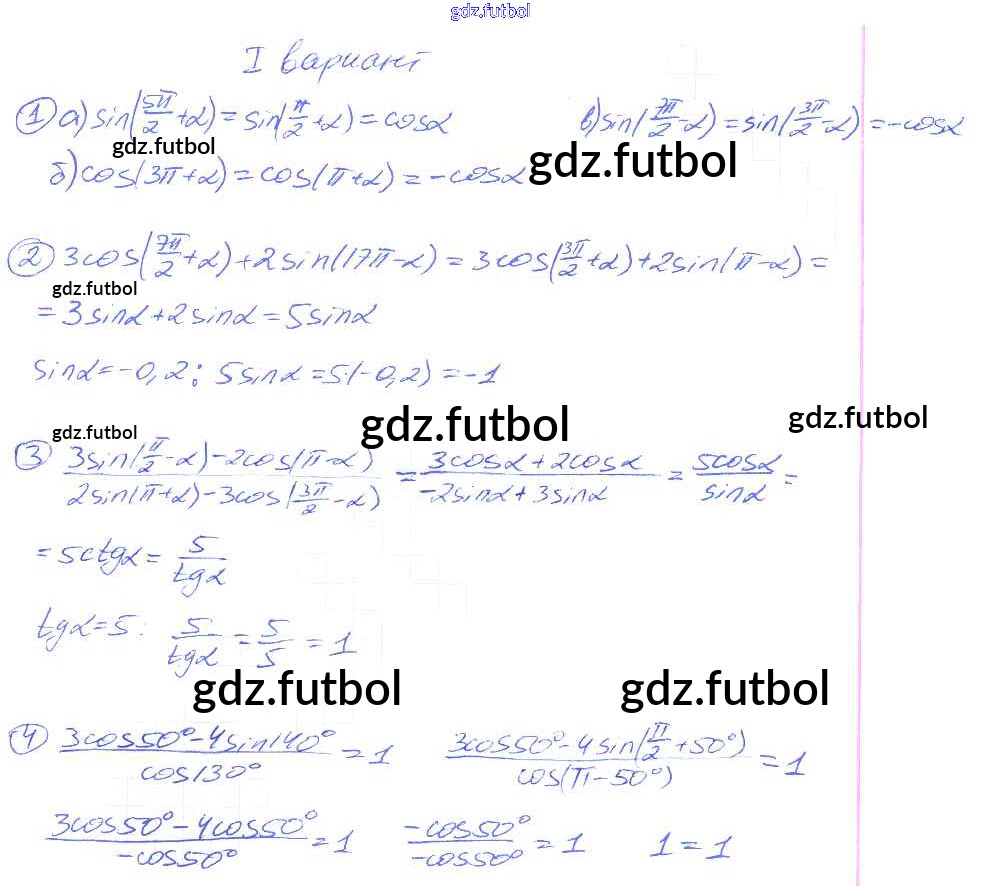 gdz.futbol
I вариант
① а) sin(5π/2 + α) = sin(π/2 + α) = cosα в) sin(7π/2 - α) = sin(3π/2 - α) = -cosα
gdz.futbol gdz.futbol
б) cos(3π + α) = cos(π + α) = -cosα
② 3cos(7π/2 + α) + 2sin(17π - α) = 3cos(3π/2 + α) + 2sin(π - α) =
gdz.futbol
= 3sinα + 2sinα = 5sinα
sinα = -0,2: 5sinα = 5(-0,2) = -1
gdz.futbol gdz.futbol gdz.futbol
③ (3sin(π/2 - α) - 2cos(π - α))/(2sin(π + α) - 3cos(3π/2 - α)) = (3cosα + 2cosα)/(-2sinα + 3sinα) = 5cosα/sinα =
= 5ctgα = 5/tgα
tgα = 5: 5/tgα = 5/5 = 1
gdz.futbol gdz.futbol
④ (3cos50° - 4sin140°)/cos130° = 1 (3cos50° - 4sin(π/2 + 50°))/cos(π - 50°) = 1
(3cos50° - 4cos50°)/(-cos50°) = 1 (-cos50°)/(-cos50°) = 1 1 = 1